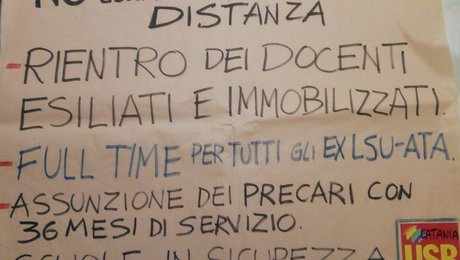 NO
DISTANZA
- RIENTRO DEI DOCENTI
ESILIATI E IMMOBILIZZATI.
- FULL TIME PER TUTTI GLI EX LSU-ATA.
- ASSUNZIONE DEI PRECARI CON
36 MESI DI SERVIZIO.
SCUOLE IN SICUREZZA
CATANIA
USB